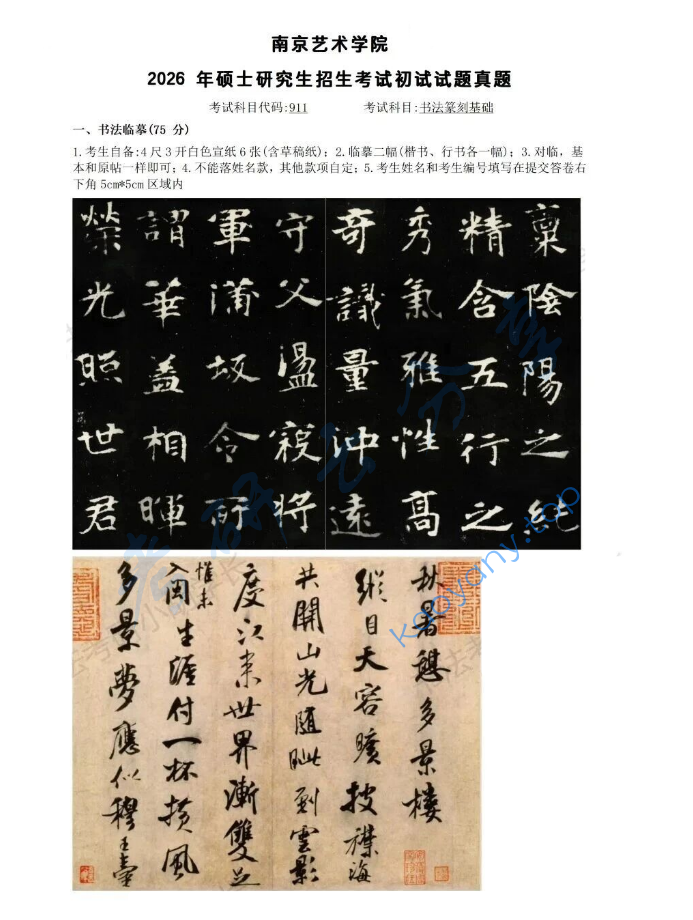 南京艺术学院
2026 年硕士研究生招生考试初试试题真题
考试科目代码:911 考试科目:书法篆刻基础
一、书法临摹(75 分)
1.考生自备:4尺3开白色宣纸6张(含草稿纸)；2.临摹二幅(楷书、行书各一幅)；3.对临，基
本和原帖一样即可；4.不能落姓名款，其他款项自定；5.考生姓名和考生编号填写在提交答卷右
下角5cm*5cm区域内
稟陰陽之純
精含五行之
秀氣雅性高
奇識量沖遠
守父盪寇將
軍蒲坂令所
謂華蓋相暉
榮光照世君
秋暑憩多景樓
縱目天容曠披襟海
共開山光隨眺到雲影
度江來世界漸雙足
惟未
入閩生涯付一杯橫風
多景夢應似穆王臺
kaoyany.top